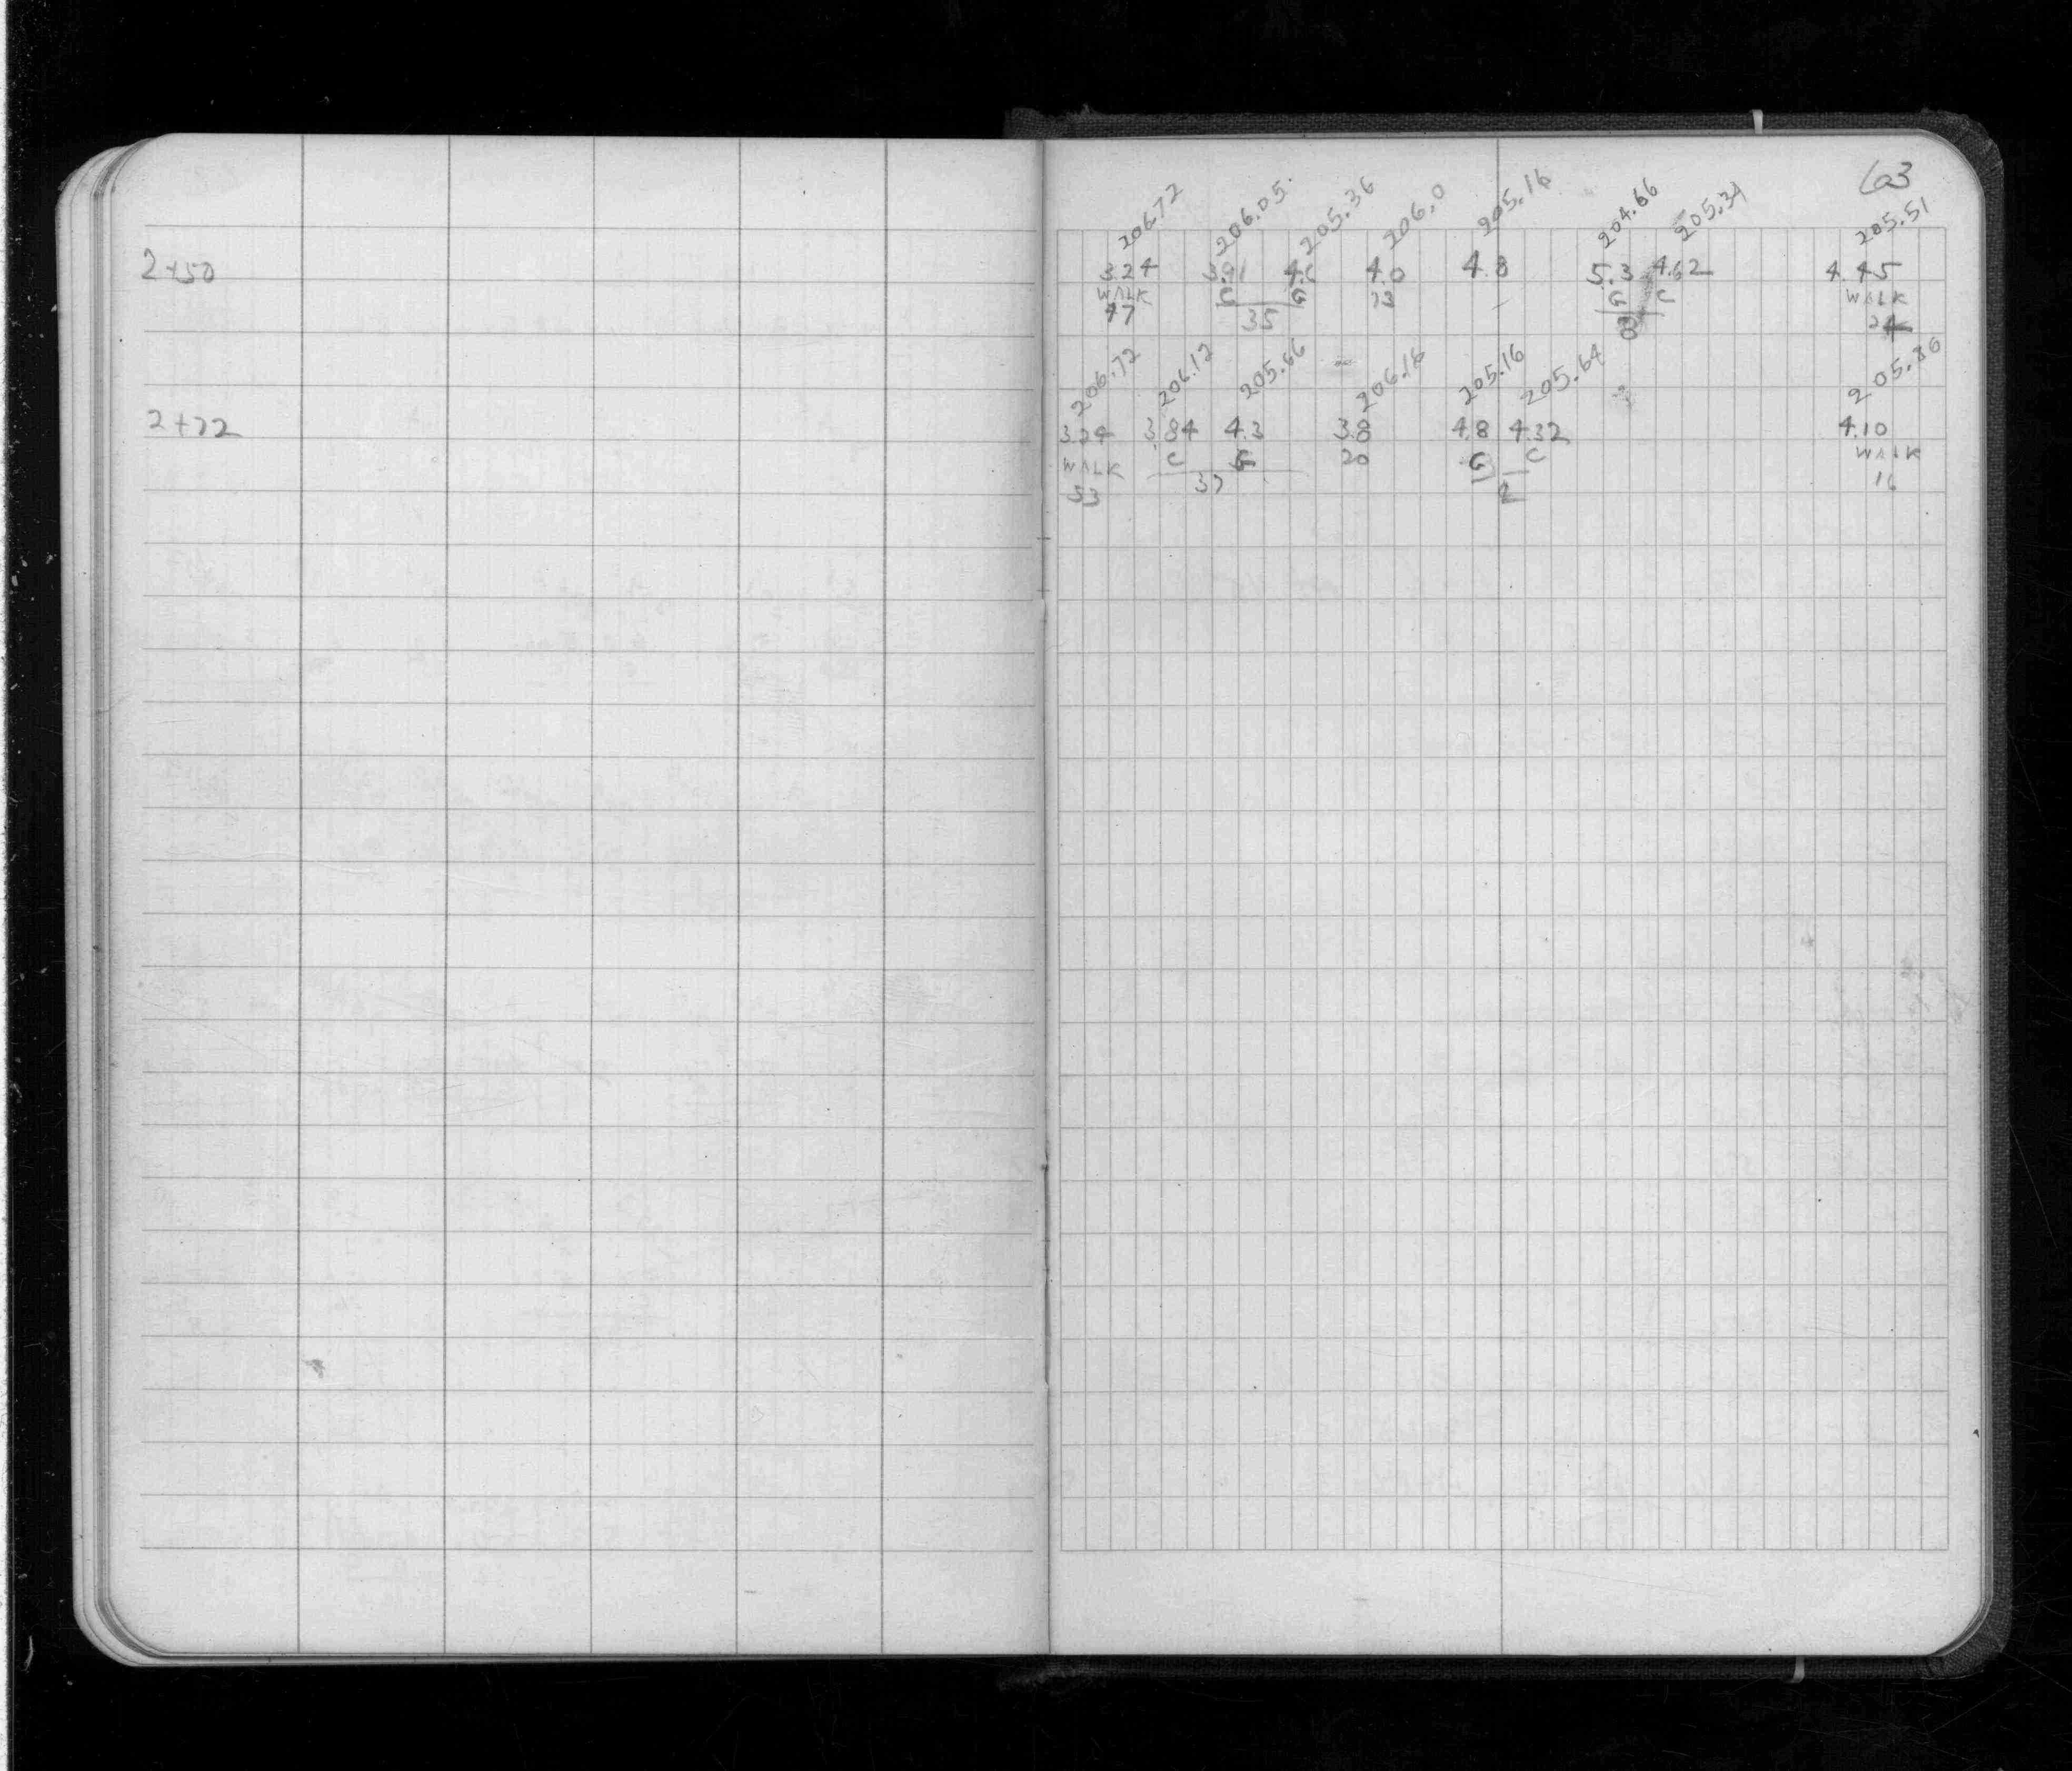 603
206.72 206.05. 205.36 206.0 205.16 204.66 205.34 205.51
2+50 3.24 3.91 4.6 4.0 4.8 5.3 4.62 4.45
WALK C G 13 G C WALK
47 35 8 24
206.72 206.12 205.66 206.16 205.16 205.64 205.86
2+72 3.24 3.84 4.3 3.8 4.8 4.32 4.10
WALK C G 20 G C WALK
53 37 2 16